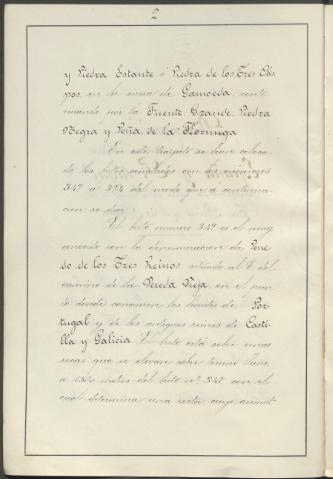 2
y Piedra Estante o Piedra de los Tres Obis
pos, en la sierra de Gamoeda, conti
nuando por la Fuente Grande, Piedra
Negra y Peña de la Hormiga
En este trayecto se han coloca
do los hitos señalados con los números
349 á 394 del modo que á continua
cion se dice:
El hito número 349 es el muy
conocido con la denominacion de Pene
do de los Tres Reinos, situado al E. del
camino de la Vereda Vieja en el pun
to donde concurren los límites de Por
tugal y de los antiguos reinos de Casti
lla y Galicia. El hito está sobre unas
rocas que se elevan sobre terreno llano,
a metros del hito nº 348 con el
cual determina una recta, cuyo acimut